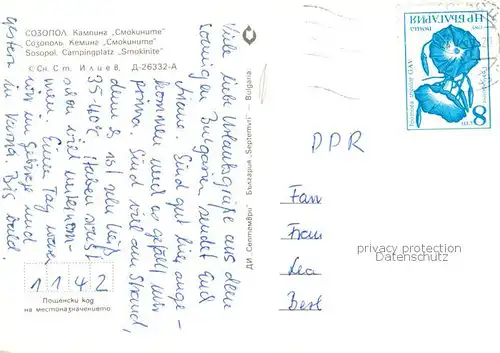 СОЗОПОЛ. Кампинг „Смокините“
Созополь. Кемпинг „Смокините“
Sosopol. Campingplatz „Smokinite“
© Сн. Ст. Илиев, Д-26332-А
Viele liebe Urlaubsgrüße aus dem
sonnigen Bulgarien sendet Euch
Ariane. Sind gut hier ange-
kommen und es gefällt mir
prima. Sind viel am Strand,
denn es ist sehr heiß
35-40°C. Haben sonst
schon viel unternom-
men. Einen Tag waren
wir im Gebirge und
gestern in Varna. Bis bald.
1 1 4 2
Пощенски код
на местоназначението
ДИ „Септември“ България „Septemvri“ - Bulgaria
НР БЪЛГАРИЯ
поща
8
DDR
Fam
Frau
Lea
Berl
privacy protection
Datenschutz